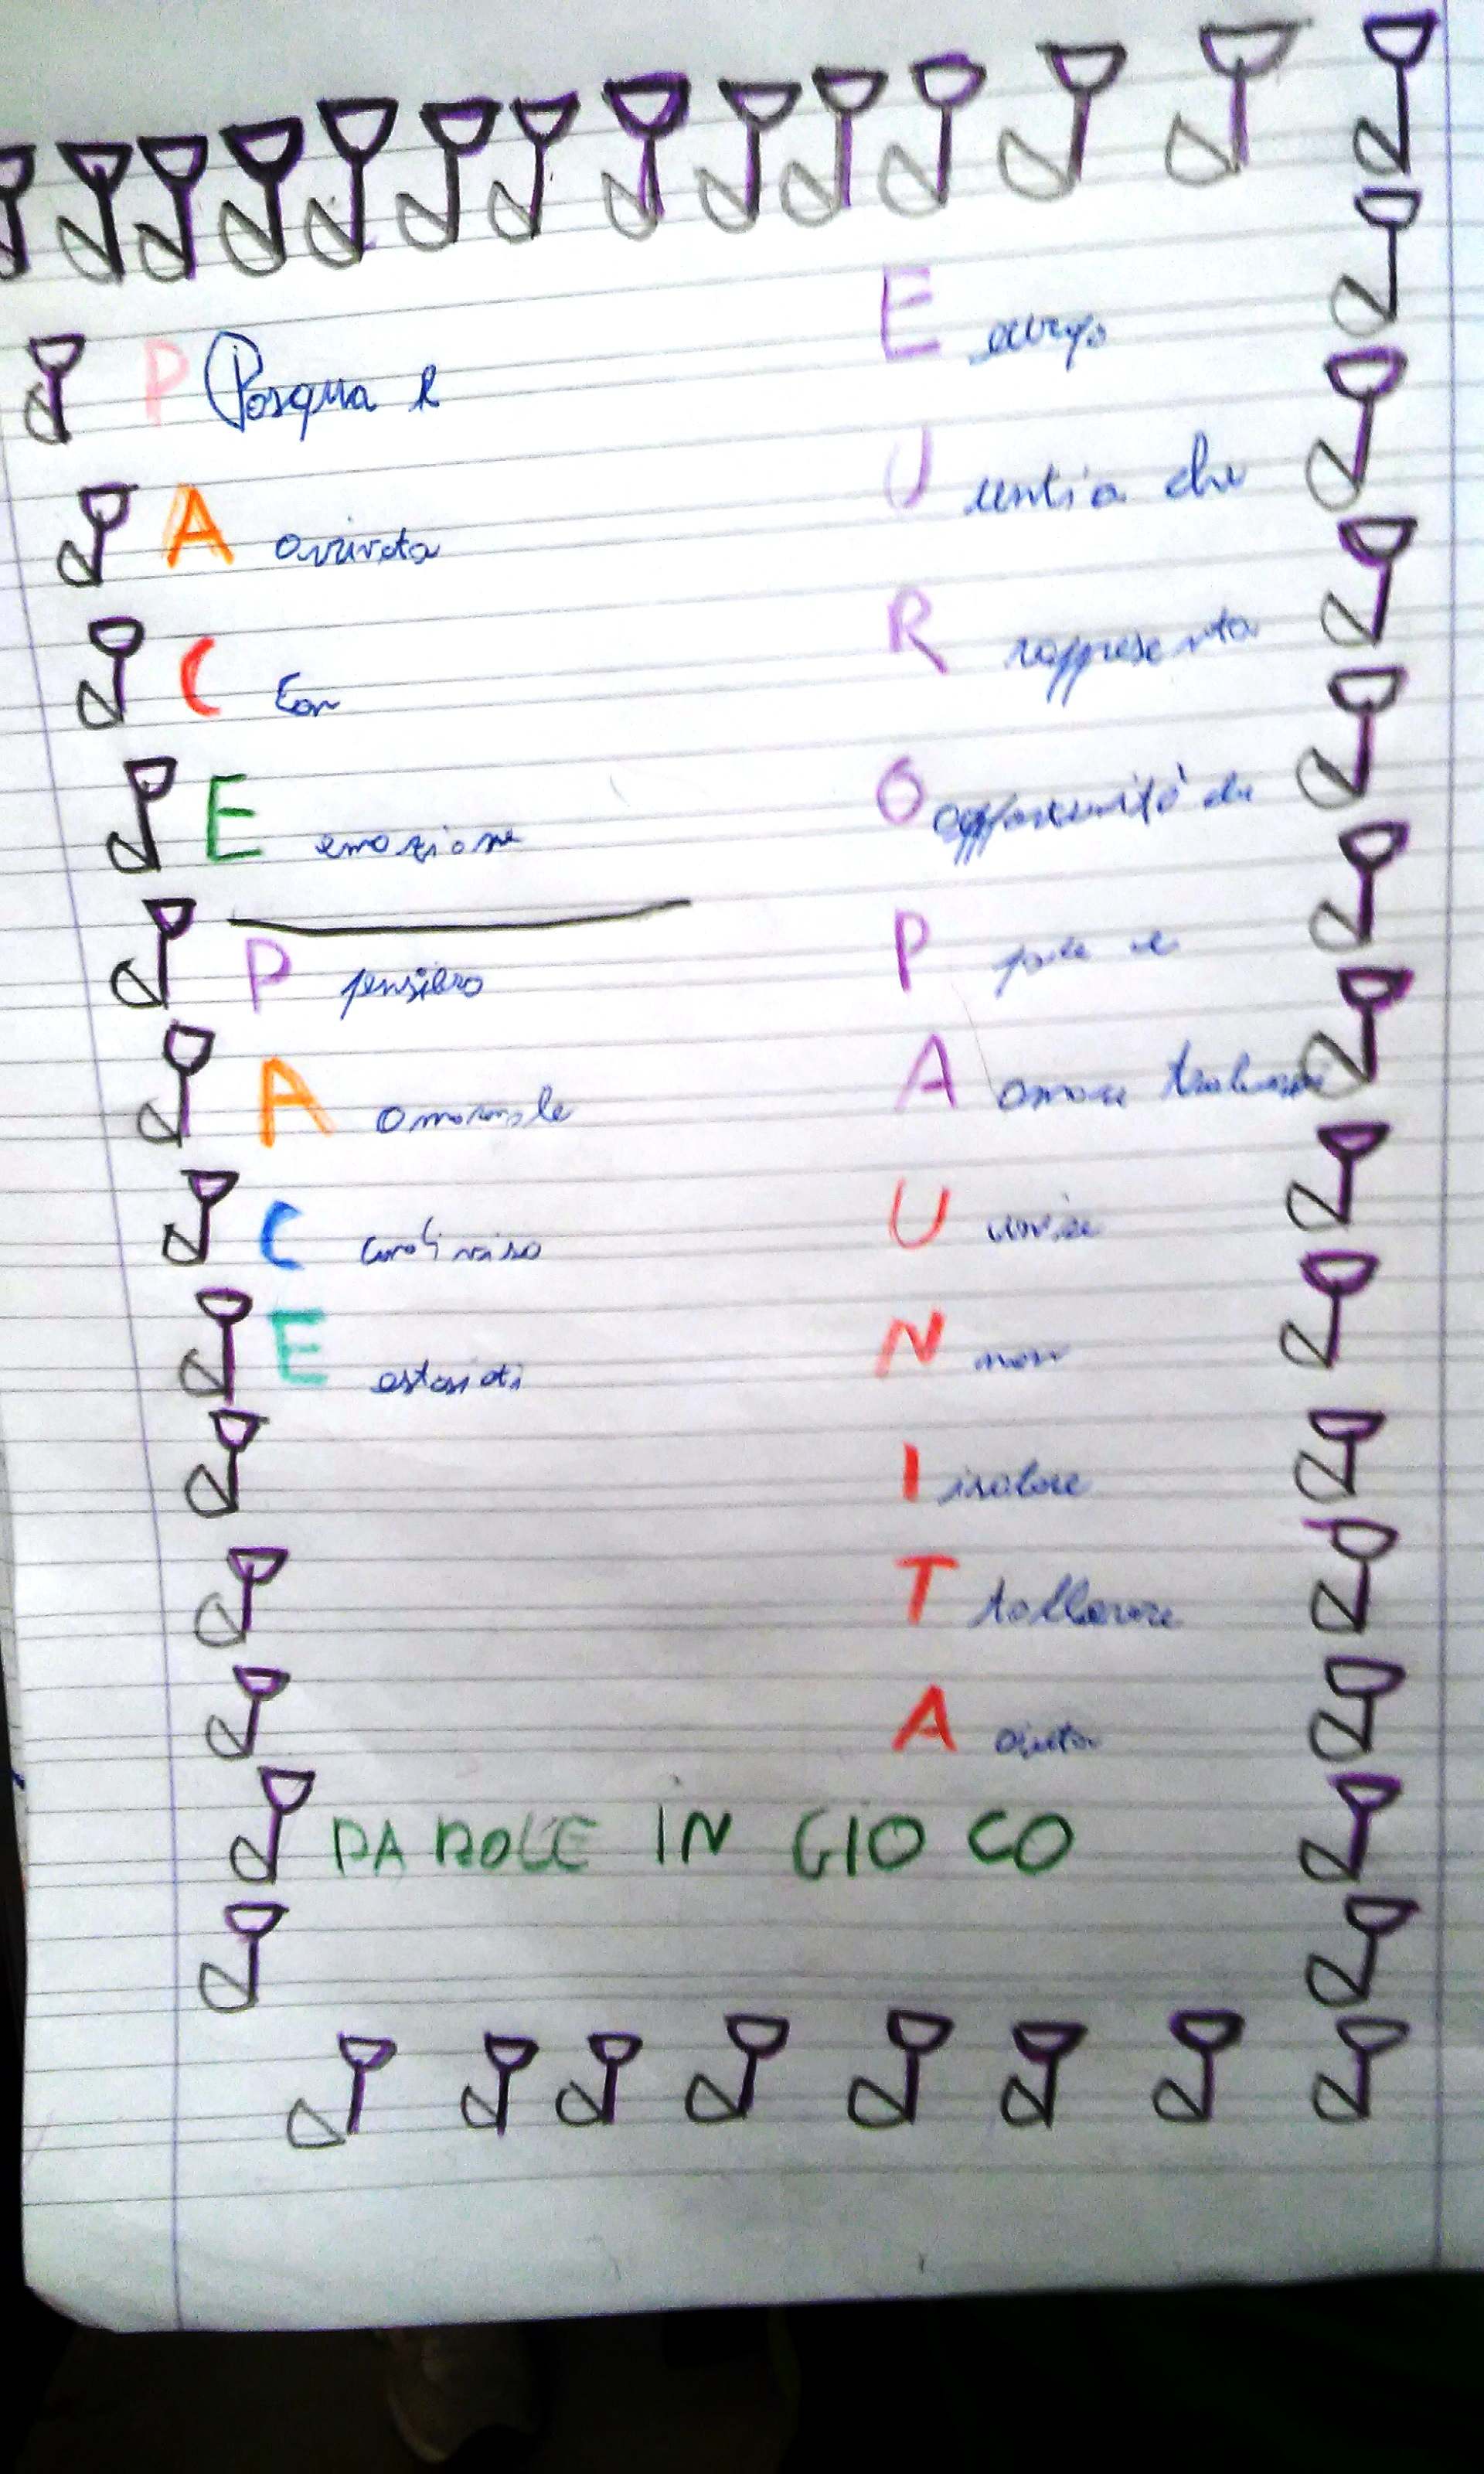 P Pasqua è
A arrivata
C Con
E emozione
P pensiero
A amorevole
C condiviso
E estasiati
E
U che
R rappresenta
O opportunità di
P pace e
A amore
U unire
N non
I isolare
T
A aiuta
PAROLE IN GIOCO